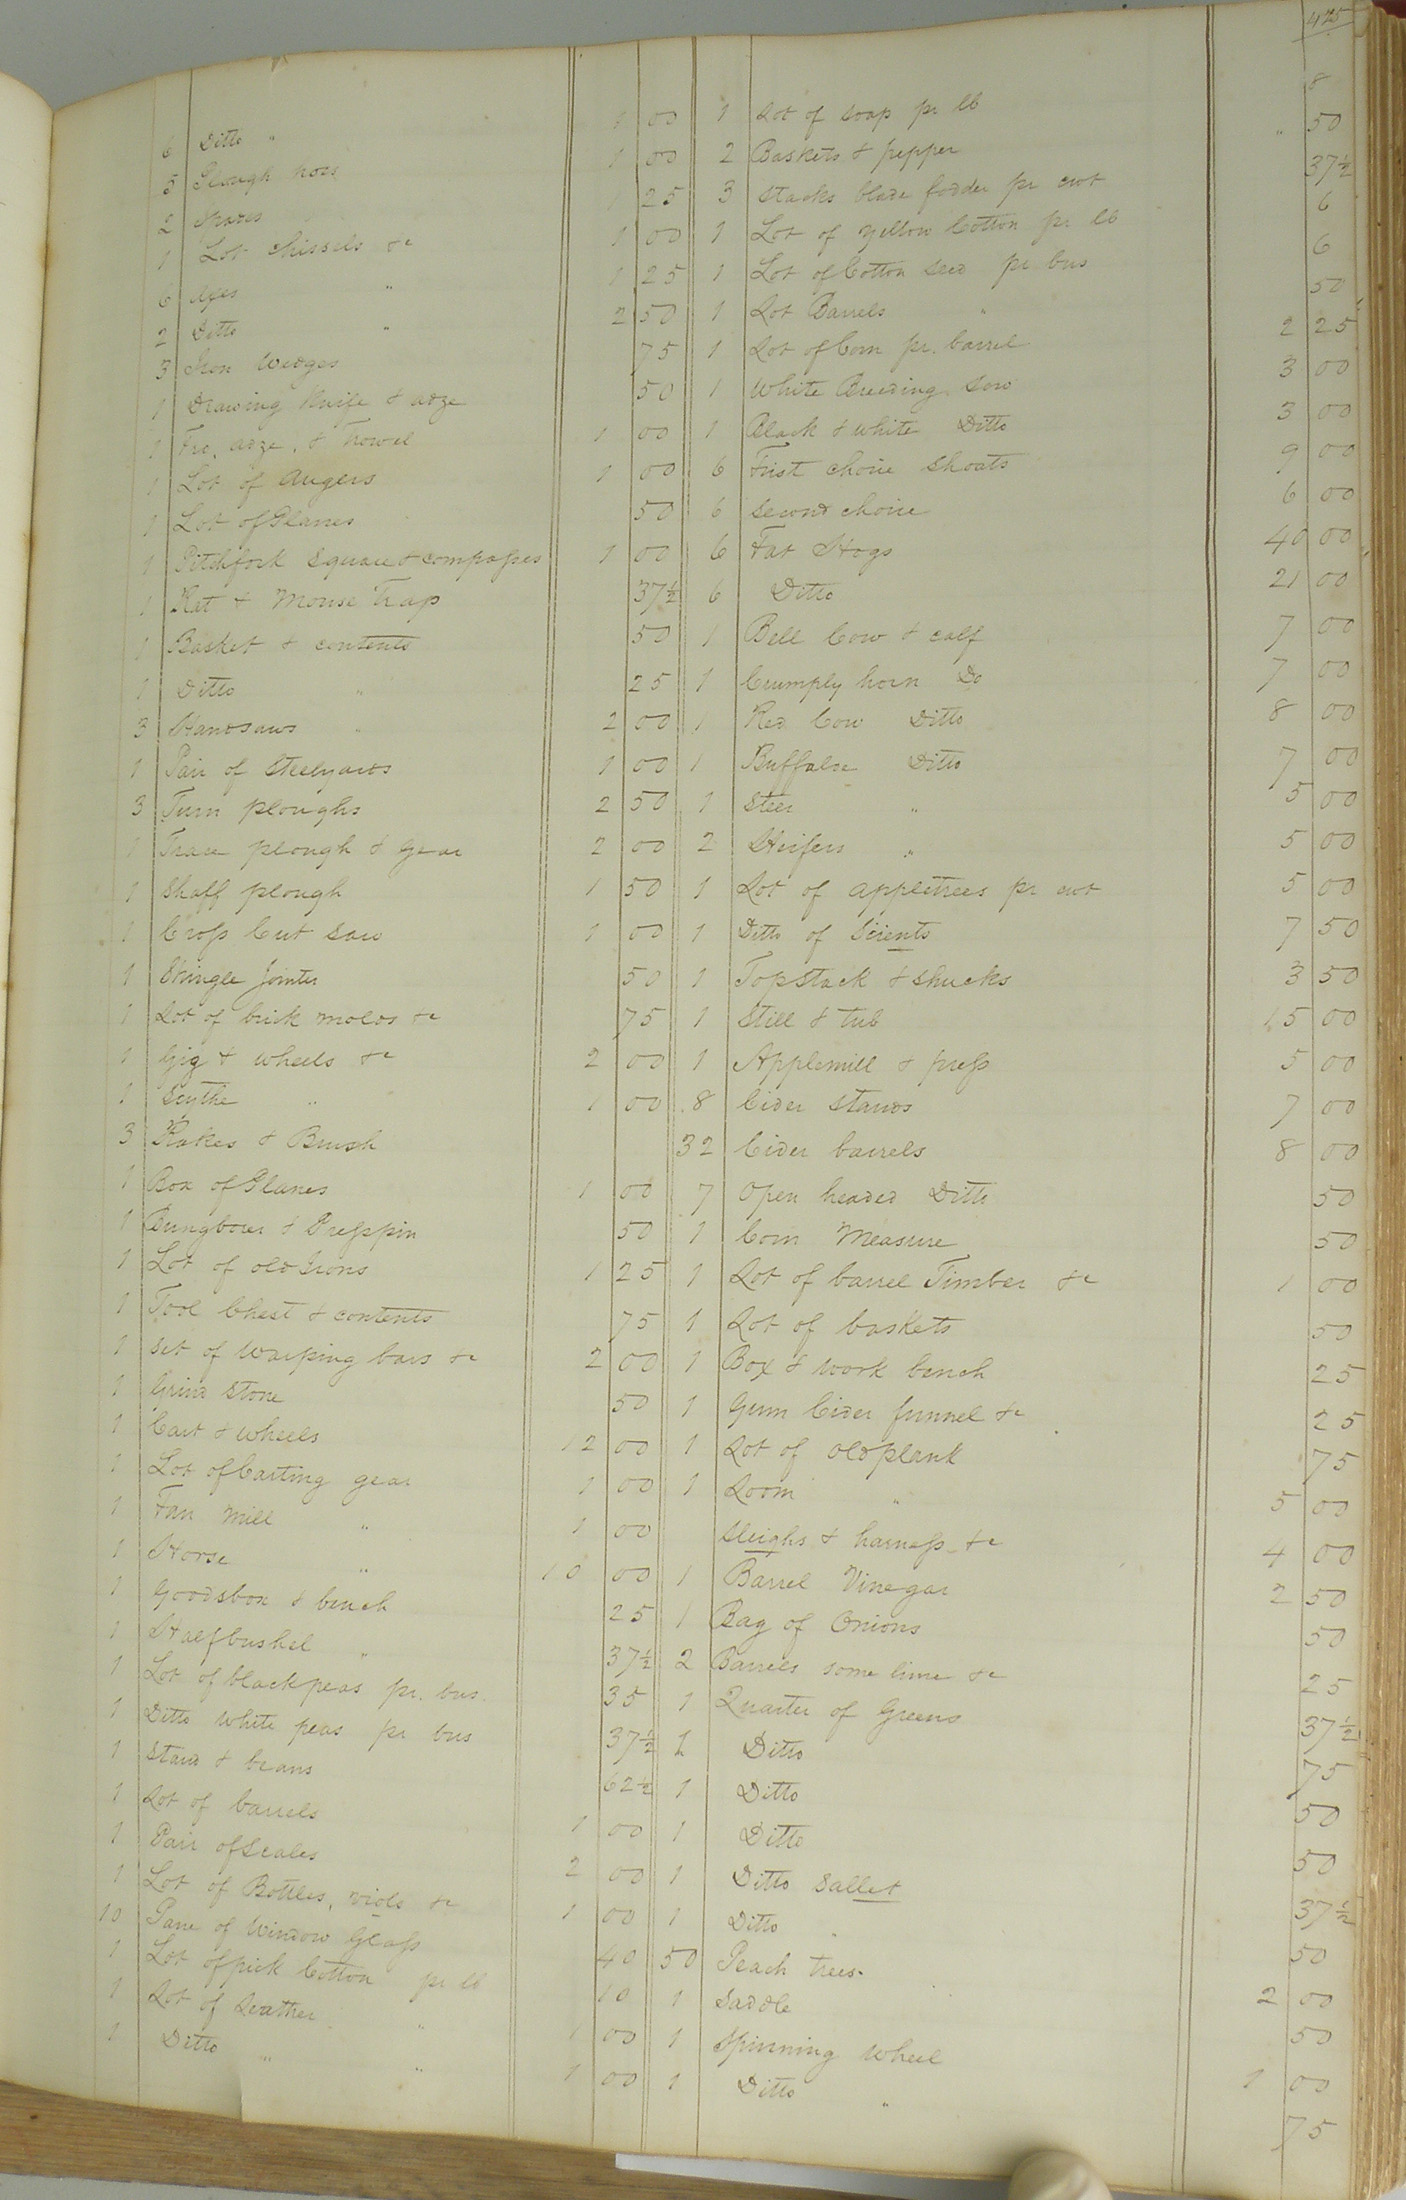 425
6 Ditto " 1 00
5 Plough hoes 1 00
2 Spades 25
1 Lot chissels &c 1 00
6 Axes " 1 25
2 Ditto " 2 50
3 Iron Wedges 75
1 Drawing Knife & adze 50
1 Fro, adze, & Trowel 1 00
1 Lot of Augers 1 00
1 Lot of Planes 50
1 Pitchfork Square & compasses 1 00
1 Rat & Mouse Trap 37½
1 Basket & contents 50
1 Ditto " 25
3 Handsaws " 2 00
1 Pair of Steelyards 1 00
3 Turn ploughs 2 50
1 Trace plough & gear 2 00
1 Shaff plough 1 50
1 Cross Cut Saw 1 00
1 Shingle Jointer 50
1 Lot of brick molds &c 75
1 Gig & wheels &c 2 00
1 Scythe " 1 00
3 Rakes & Brush
1 Box of Planes 1 00
1 Bungborer & Presspin 50
1 Lot of old Irons 1 25
1 Tool Chest & contents 75
1 Set of Warping bars &c 2 00
1 Grind Stone 50
1 Cart & wheels 12 00
1 Lot of Carting gear 1 00
1 Fan Mill " 1 00
1 Horse " 10 00
1 Goodsbox & bench 25
1 Halfbushel " 37½
1 Lot of black peas pr. bus. 35
1 Ditto White peas pr bus 37½
1 Stand & beans 62½
1 Lot of barrels 1 00
1 Pair of Scales 2 00
1 Lot of Bottles, viols &c 1 00
10 Pane of Window Glass 40
1 Lot of pick Cotton pr lb 10
1 Lot of Leather " 1 00
1 Ditto " " 1 00
1 Lot of soap pr lb 8
2 Baskets & pepper " 50
3 Stacks blade fodder pr cwt 37½
1 Lot of Yellow Cotton pr lb 6
1 Lot of Cotton seed pr bus 6
1 Lot Barrels " 50
1 Lot of Corn pr. barrel 2 25
1 White Breeding Sow 3 00
1 Black & white Ditto 3 00
6 First choice Shoats 9 00
6 Second choice 6 00
6 Fat Hogs 40 00
6 Ditto 21 00
1 Bell Cow & calf 7 00
1 Crumply horn Do 7 00
1 Red Cow Ditto 8 00
1 Buffaloe Ditto 7 00
1 Steer " 5 00
2 Heifers " 5 00
1 Lot of appletrees pr cwt 5 00
1 Ditto of Scients 7 50
1 Topstack & shucks 3 50
1 Still & tub 15 00
1 Applemill & press 5 00
8 Cider Stands 7 00
32 Cider barrels 8 00
7 Open headed Ditto 50
1 Corn Measure 50
1 Lot of barrel Timber &c 1 00
1 Lot of baskets 50
1 Box & work bench 25
1 Gum Cider funnel &c 25
1 Lot of old plank 75
1 Loom " 5 00
Sleighs & harness &c 4 00
1 Barrel Vinegar 2 50
1 Bag of Onions 50
2 Barrels some lime &c 25
1 Quarter of Greens 37½
1 Ditto 75
1 Ditto 50
1 Ditto 50
1 Ditto Sallet 37½
1 Ditto " 50
50 Peach trees 2 00
1 Saddle 50
1 Spinning Wheel 1 00
1 Ditto " 75